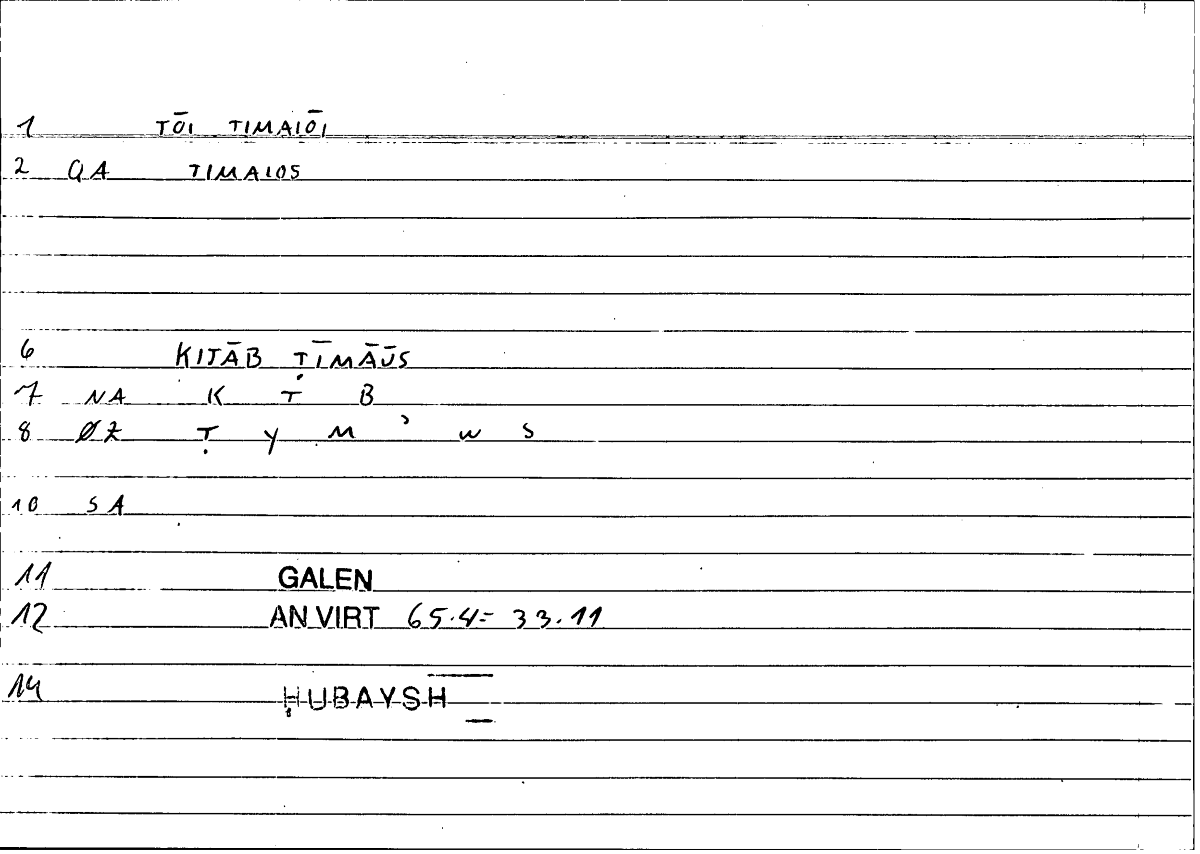 1 TŌI TIMAIŌI
2 QA TIMAIOS
6 KITĀB ṬĪMĀŪS
7 NA K T B
8 ØZ Ṭ y M ʾ w S
10 SA
11 GALEN
12 AN VIRT 65.4= 33.11
14 ḤUBAYSH